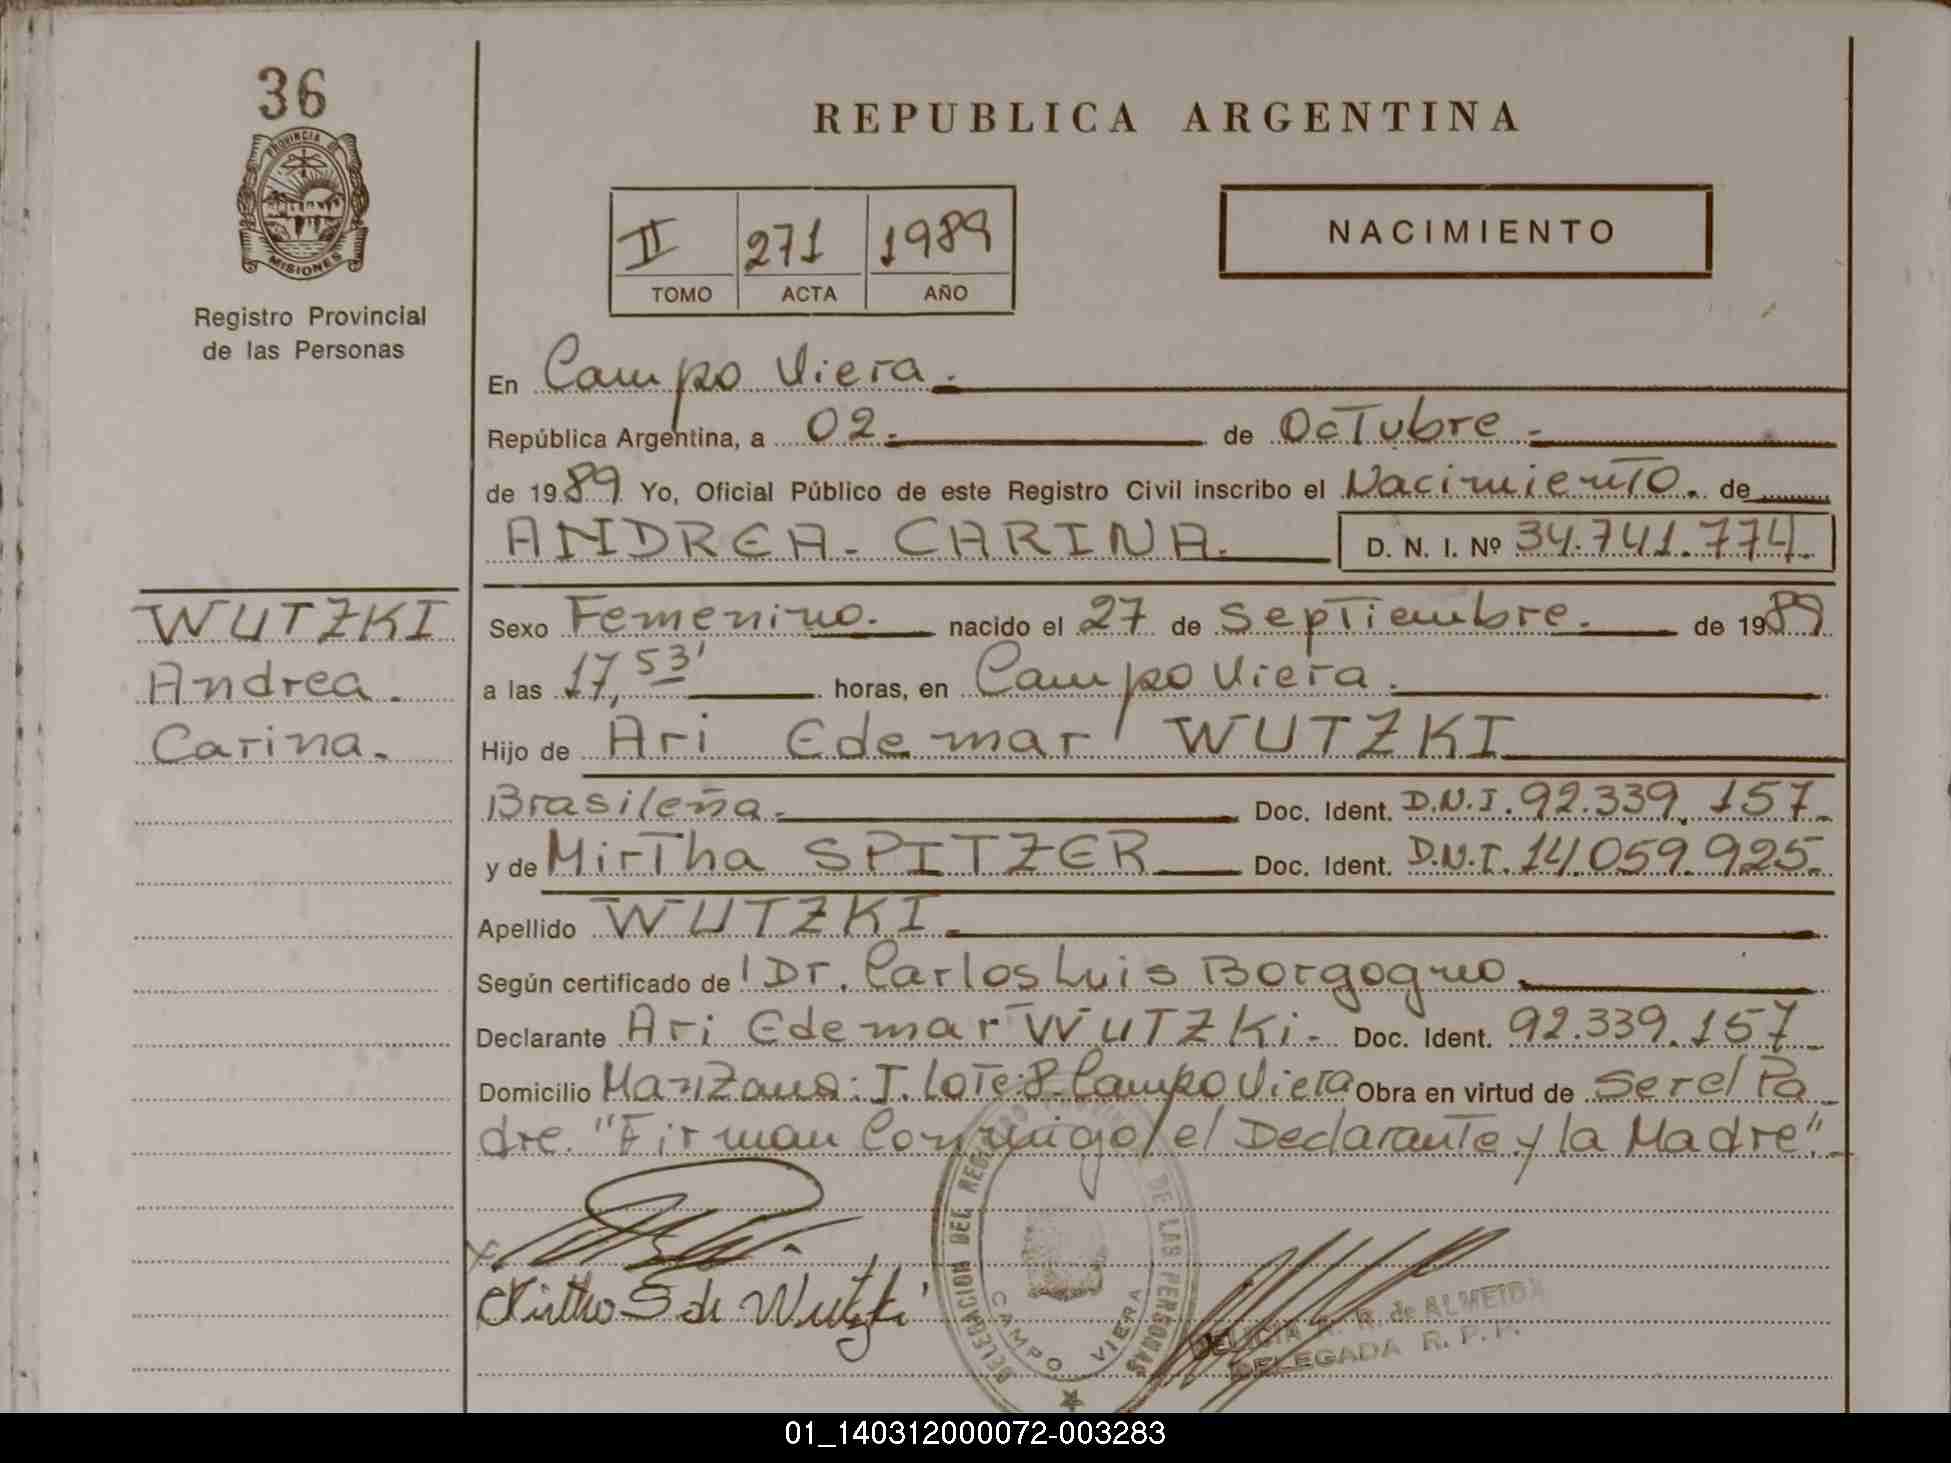 36
PROVINCIA DE
MISIONES
Registro Provincial
de las Personas
WUTZKI
Andrea.
Carina.
REPUBLICA ARGENTINA
II 271 1989
TOMO ACTA AÑO
NACIMIENTO
En Campo Viera.
República Argentina, a 02. de Octubre.
de 1989 Yo, Oficial Público de este Registro Civil inscribo el Nacimiento. de
ANDREA. CARINA. D. N. I. Nº 34.741.774.
Sexo Femenino. nacido el 27 de Septiembre. de 1989
a las 17,53' horas, en Campo Viera.
Hijo de Ari Edemar WUTZKI
Brasileña. Doc. Ident. D.N.I. 92.339.157.
y de Mirtha SPITZER Doc. Ident. D.N.I. 14.059.925.
Apellido WUTZKI
Según certificado de Dr. Carlos Luis Borgogno.
Declarante Ari Edemar WUTZKi. Doc. Ident. 92.339.157.
Domicilio Manzana: I. Lote: 8. Campo Viera Obra en virtud de Ser el Pa
dre. "Firman Conmigo el Declarante y la Madre".
Mirtha S de Wutzki
DELEGACION DEL REGISTRO PROVINCIAL DE LAS PERSONAS
CAMPO VIERA
R. de ALMEIDA
DELEGADA R. P. P.
01_140312000072-003283